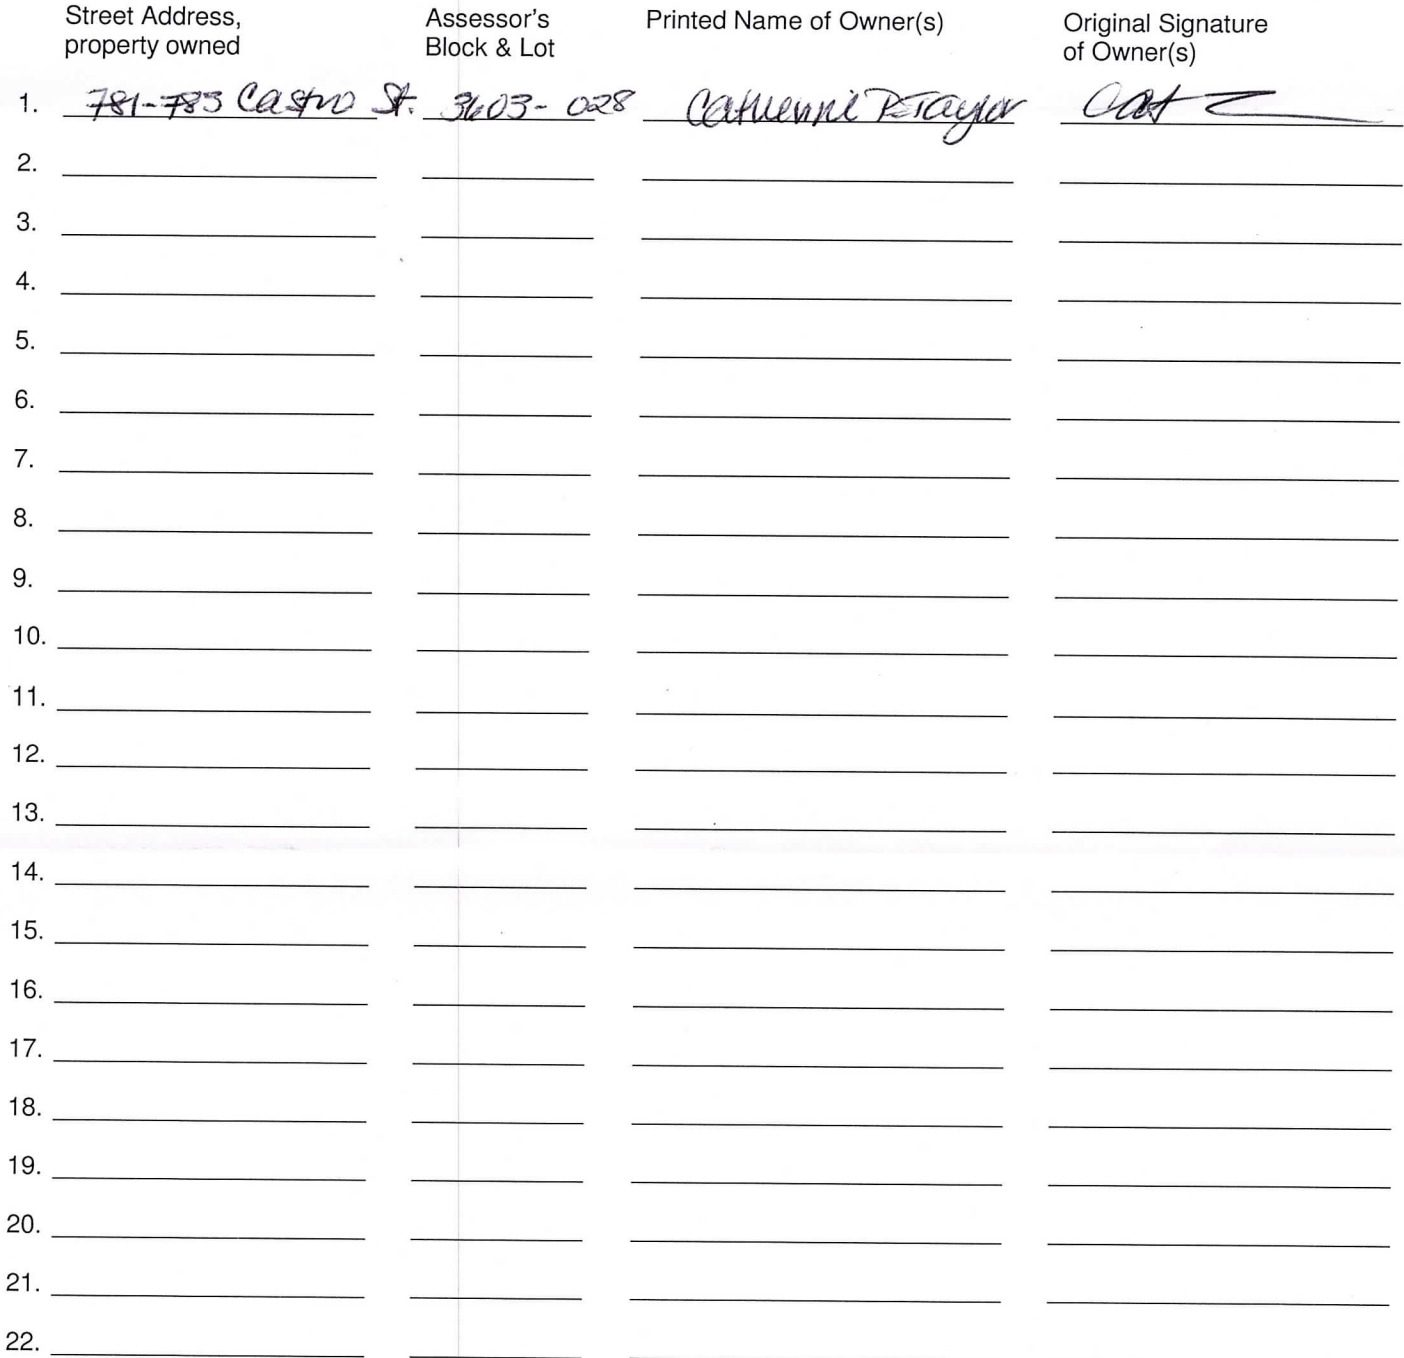 Street Address, property owned Assessor's Block & Lot Printed Name of Owner(s) Original Signature of Owner(s)
1. 781-783 Castro St. 3603-028 Catherine Taylor
2.
3.
4.
5.
6.
7.
8.
9.
10.
11.
12.
13.
14.
15.
16.
17.
18.
19.
20.
21.
22.